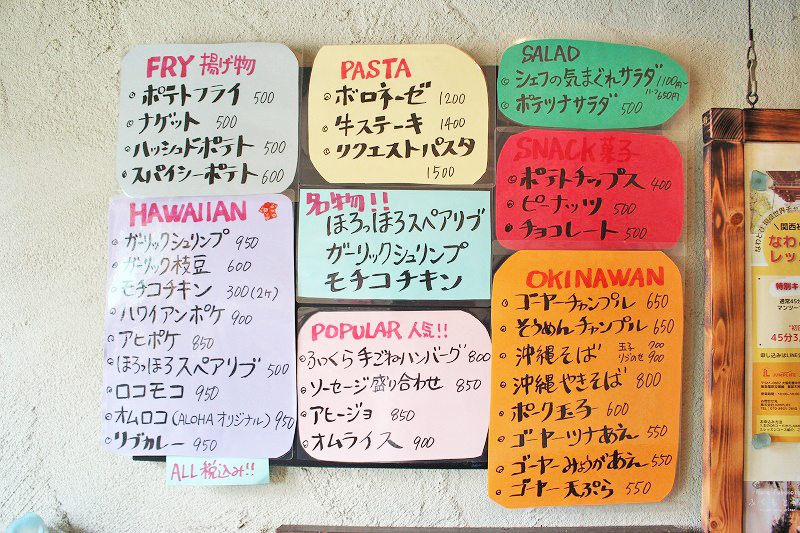 FRY 揚げ物
ポテトフライ 500
ナゲット 500
ハッシュドポテト 500
スパイシーポテト 600
HAWAIIAN
ガーリックシュリンプ 950
ガーリック枝豆 600
モチコチキン 300(2ヶ)
ハワイアンポケ 900
アヒポケ 850
ほろっほろスペアリブ 500
ロコモコ 950
オムロコ(ALOHAオリジナル) 950
リブカレー 950
ALL 税込み!!
PASTA
ボロネーゼ 1200
牛ステーキ 1400
リクエストパスタ
1500
名物!!
ほろっほろスペアリブ
ガーリックシュリンプ
モチコチキン
POPULAR 人気!!
ふっくら手ごねハンバーグ 800
ソーセージ盛り合わせ 850
アヒージョ 850
オムライス 900
SALAD
シェフの気まぐれサラダ 1100円~
ハーフ650円
ポテツナサラダ 500
SNACK 菓子
ポテトチップス 400
ピーナッツ 500
チョコレート 500
OKINAWAN
ゴーヤーチャンプル 650
そうめんチャンプル 650
沖縄そば 玉子 700
リブのせ 900
沖縄やきそば 800
ポーク玉子 600
ゴーヤーツナあえ 550
ゴーヤーみょうがあえ 550
ゴーヤー天ぷら 550
\関西初
なわ
レッ
特別キ
通常45分
マンツー
45分3,
申し込みはLINE